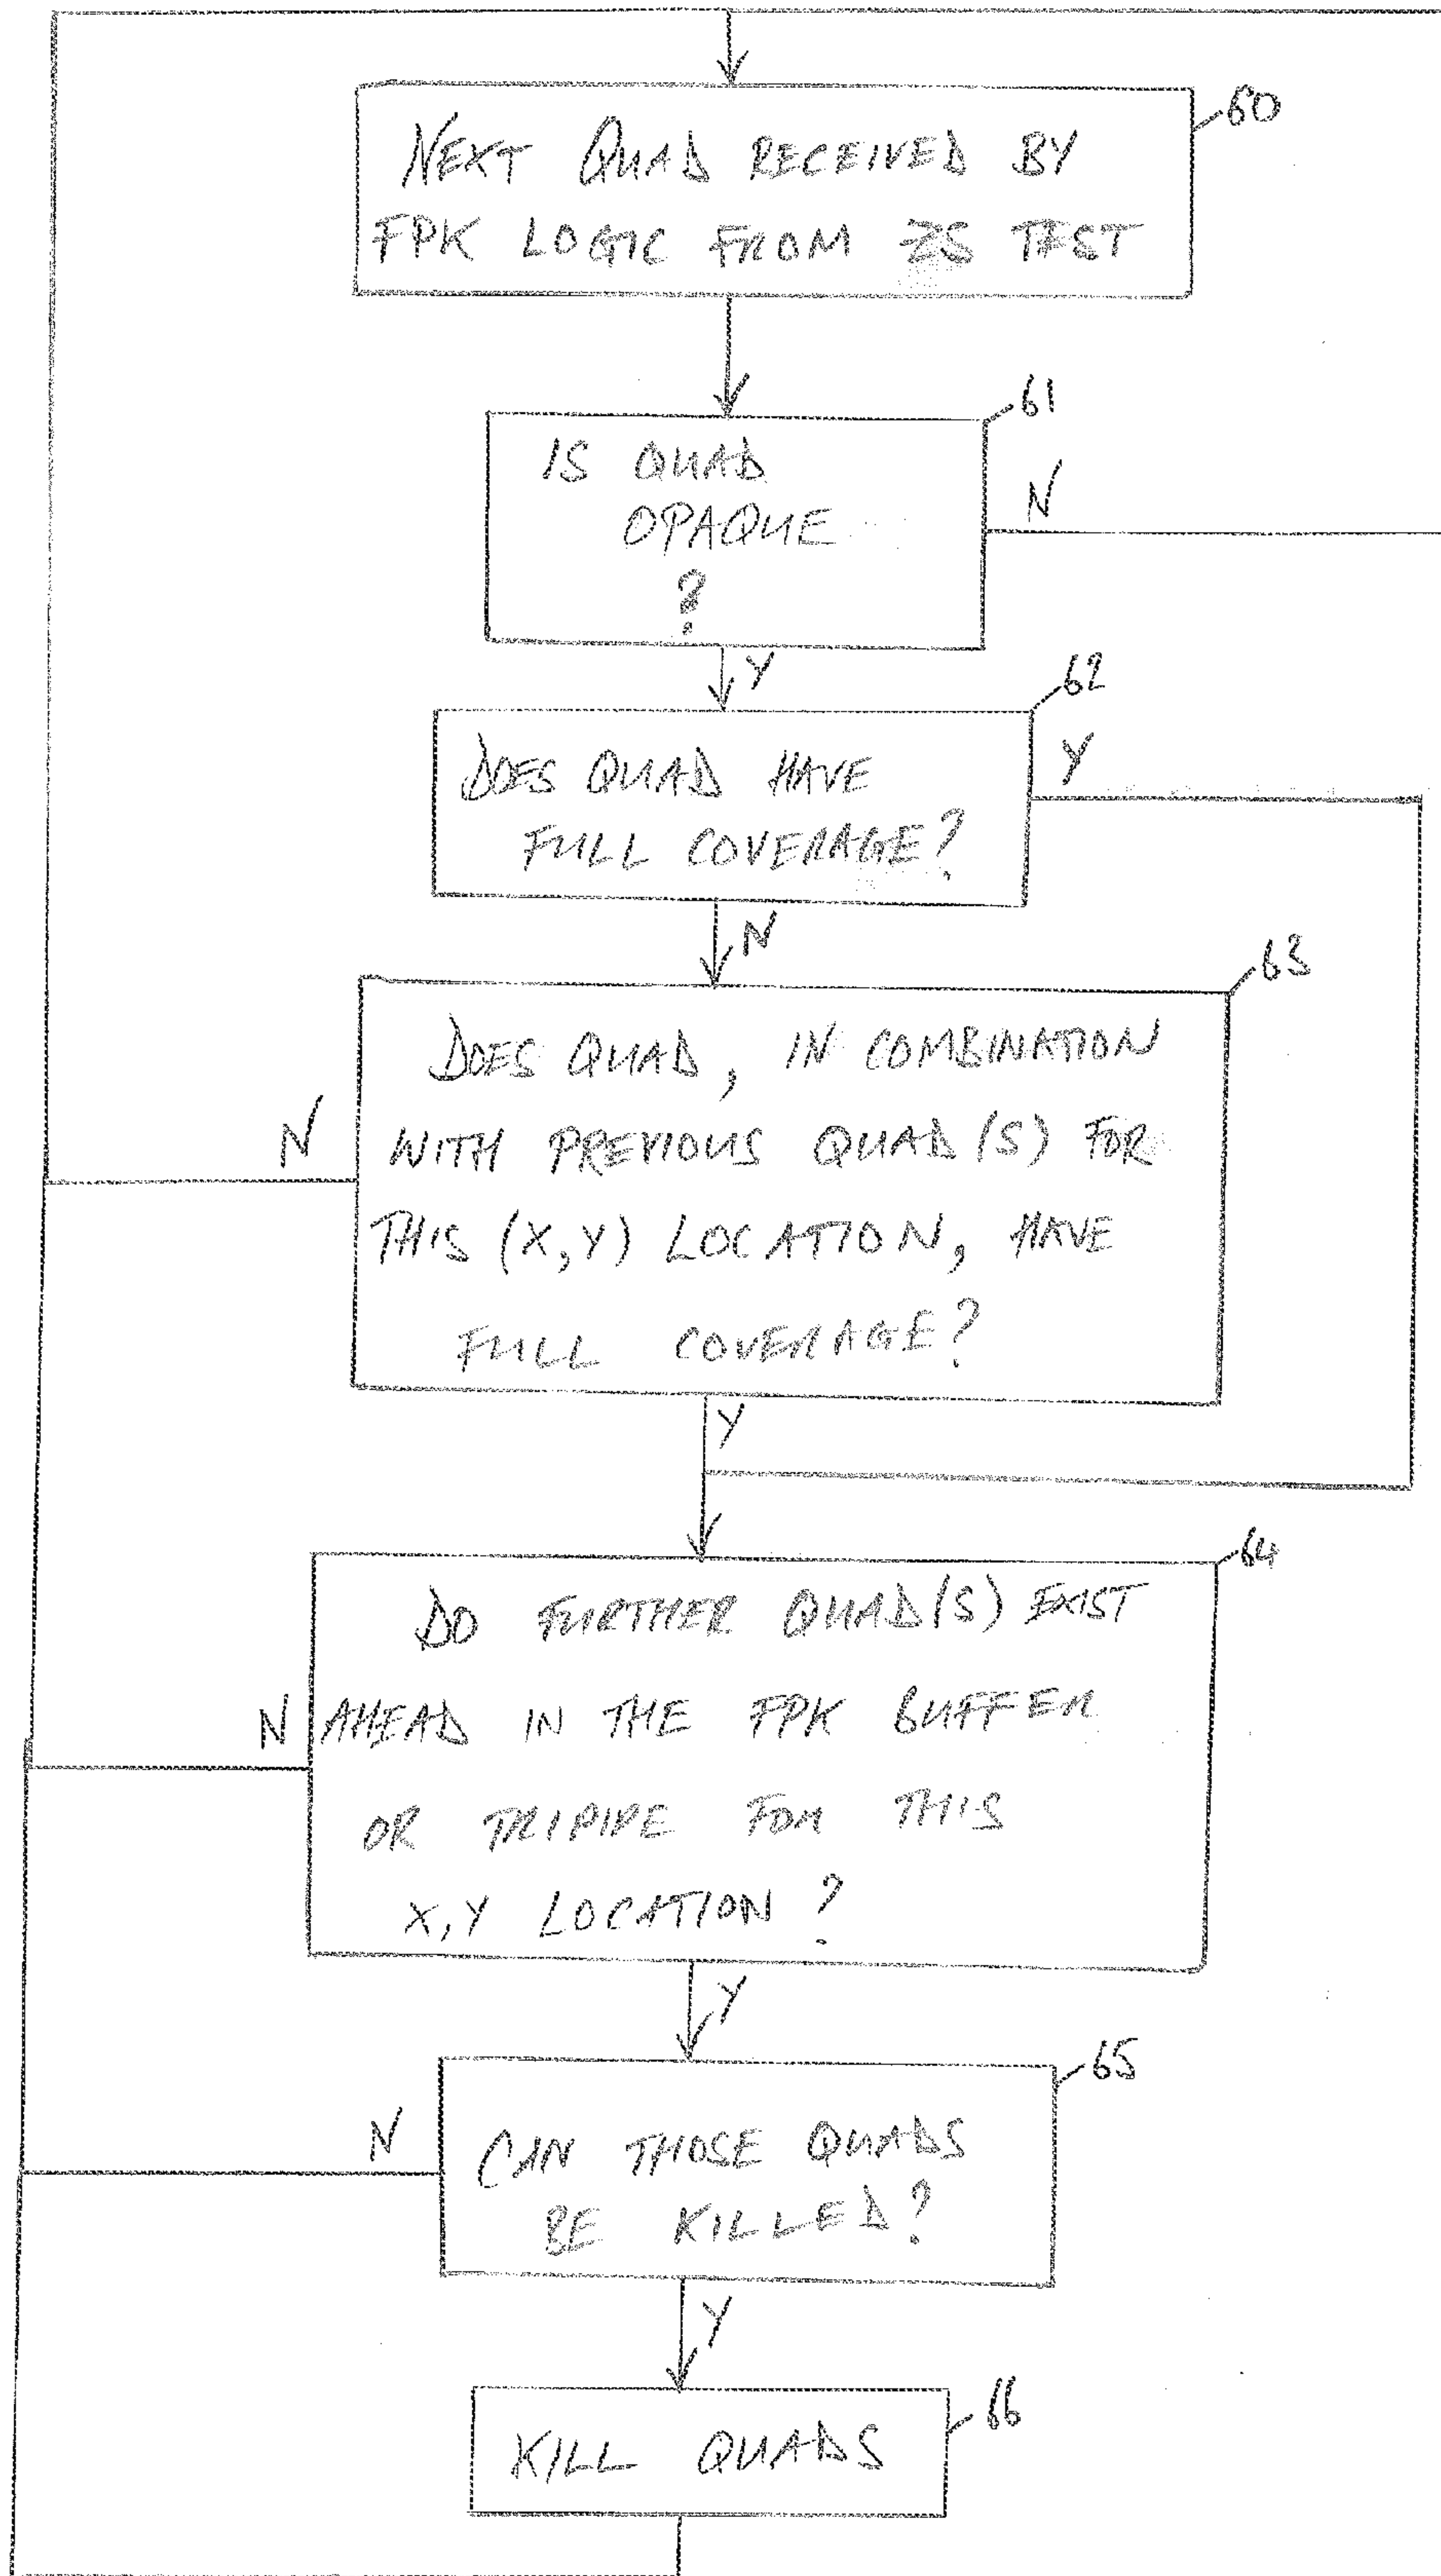 60
NEXT QUAD RECEIVED BY
FPK LOGIC FROM ZS TEST
61
IS QUAD
OPAQUE
?
N
Y
62
DOES QUAD HAVE
FULL COVERAGE?
Y
N
63
DOES QUAD, IN COMBINATION
WITH PREVIOUS QUAD(S) FOR
THIS (X,Y) LOCATION, HAVE
FULL COVERAGE?
N
Y
64
DO FURTHER QUAD(S) EXIST
AHEAD IN THE FPK BUFFER
OR TRIPIPE FOR THIS
X,Y LOCATION?
N
Y
65
CAN THOSE QUADS
BE KILLED?
N
Y
66
KILL QUADS